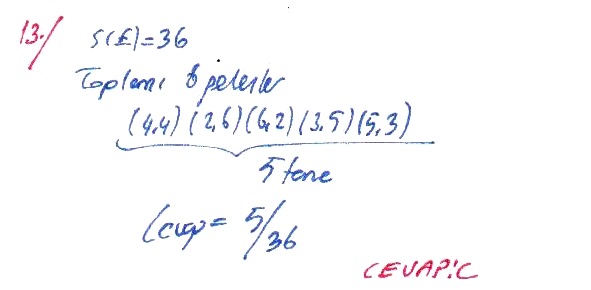 13./ S(E)=36
Toplamı 8 gelenler
(4,4) (2,6) (6,2) (3,5) (5,3)
5 tane
Cevap = 5/36
CEVAP: C